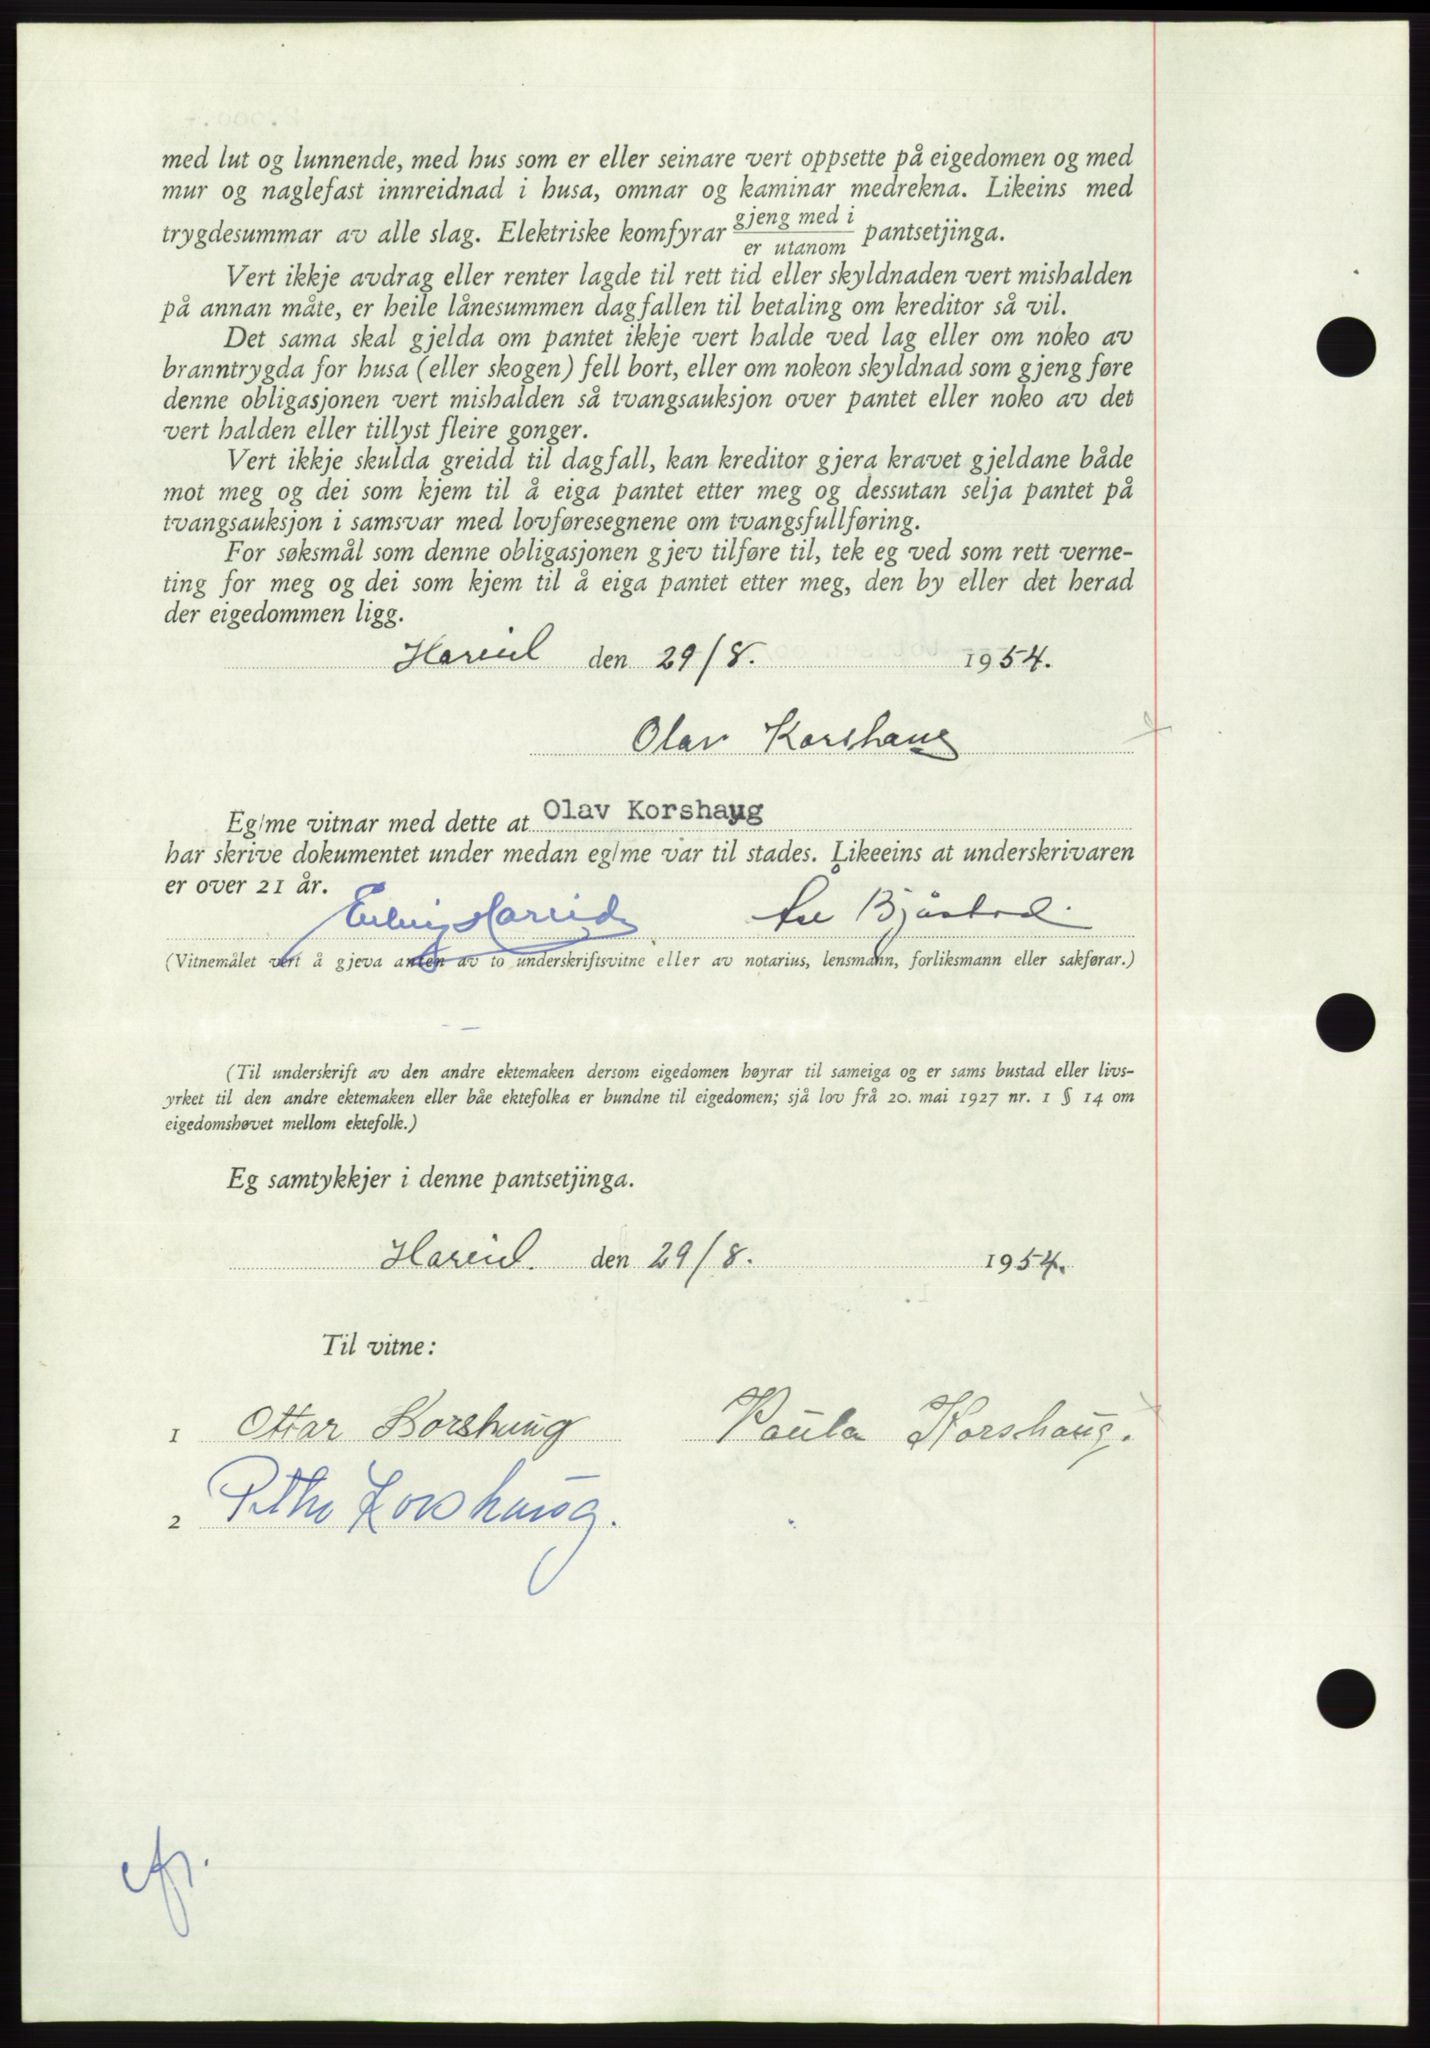 med lut og lunnende, med hus som er eller seinare vert oppsette på eigedomen og med
mur og naglefast innreidnad i husa, omnar og kaminar medrekna. Likeins med
trygdesummar av alle slag. Elektriske komfyrar gjeng med i / er utanom pantsetjinga.
Vert ikkje avdrag eller renter lagde til rett tid eller skyldnaden vert mishalden
på annan måte, er heile lånesummen dagfallen til betaling om kreditor så vil.
Det sama skal gjelda om pantet ikkje vert halde ved lag eller om noko av
branntrygda for husa (eller skogen) fell bort, eller om nokon skyldnad som gjeng føre
denne obligasjonen vert mishalden så tvangsauksjon over pantet eller noko av det
vert halden eller tillyst fleire gonger.
Vert ikkje skulda greidd til dagfall, kan kreditor gjera kravet gjeldane både
mot meg og dei som kjem til å eiga pantet etter meg og dessutan selja pantet på
tvangsauksjon i samsvar med lovføresegnene om tvangsfullføring.
For søksmål som denne obligasjonen gjev tilføre til, tek eg ved som rett verne-
ting for meg og dei som kjem til å eiga pantet etter meg, den by eller det herad
der eigedommen ligg.
Hareid den 29/8. 1954.
Olav Korshaug
Eg/me vitnar med dette at Olav Korshaug
har skrive dokumentet under medan eg/me var til stades. Likeeins at underskrivaren
er over 21 år.
Erling Hareide Åse Bjåstad.
(Vitnemålet vert å gjeva anten av to underskriftsvitne eller av notarius, lensmann, forliksmann eller sakførar.)
(Til underskrift av den andre ektemaken dersom eigedomen høyrar til sameiga og er sams bustad eller livs-
yrket til den andre ektemaken eller båe ektefolka er bundne til eigedomen; sjå lov frå 20. mai 1927 nr. 1 § 14 om
eigedomshøvet mellom ektefolk.)
Eg samtykkjer i denne pantsetjinga.
Hareid. den 29/8. 1954.
Til vitne:
1 Ottar Korshaug Paula Korshaug.
2 Korshaug.